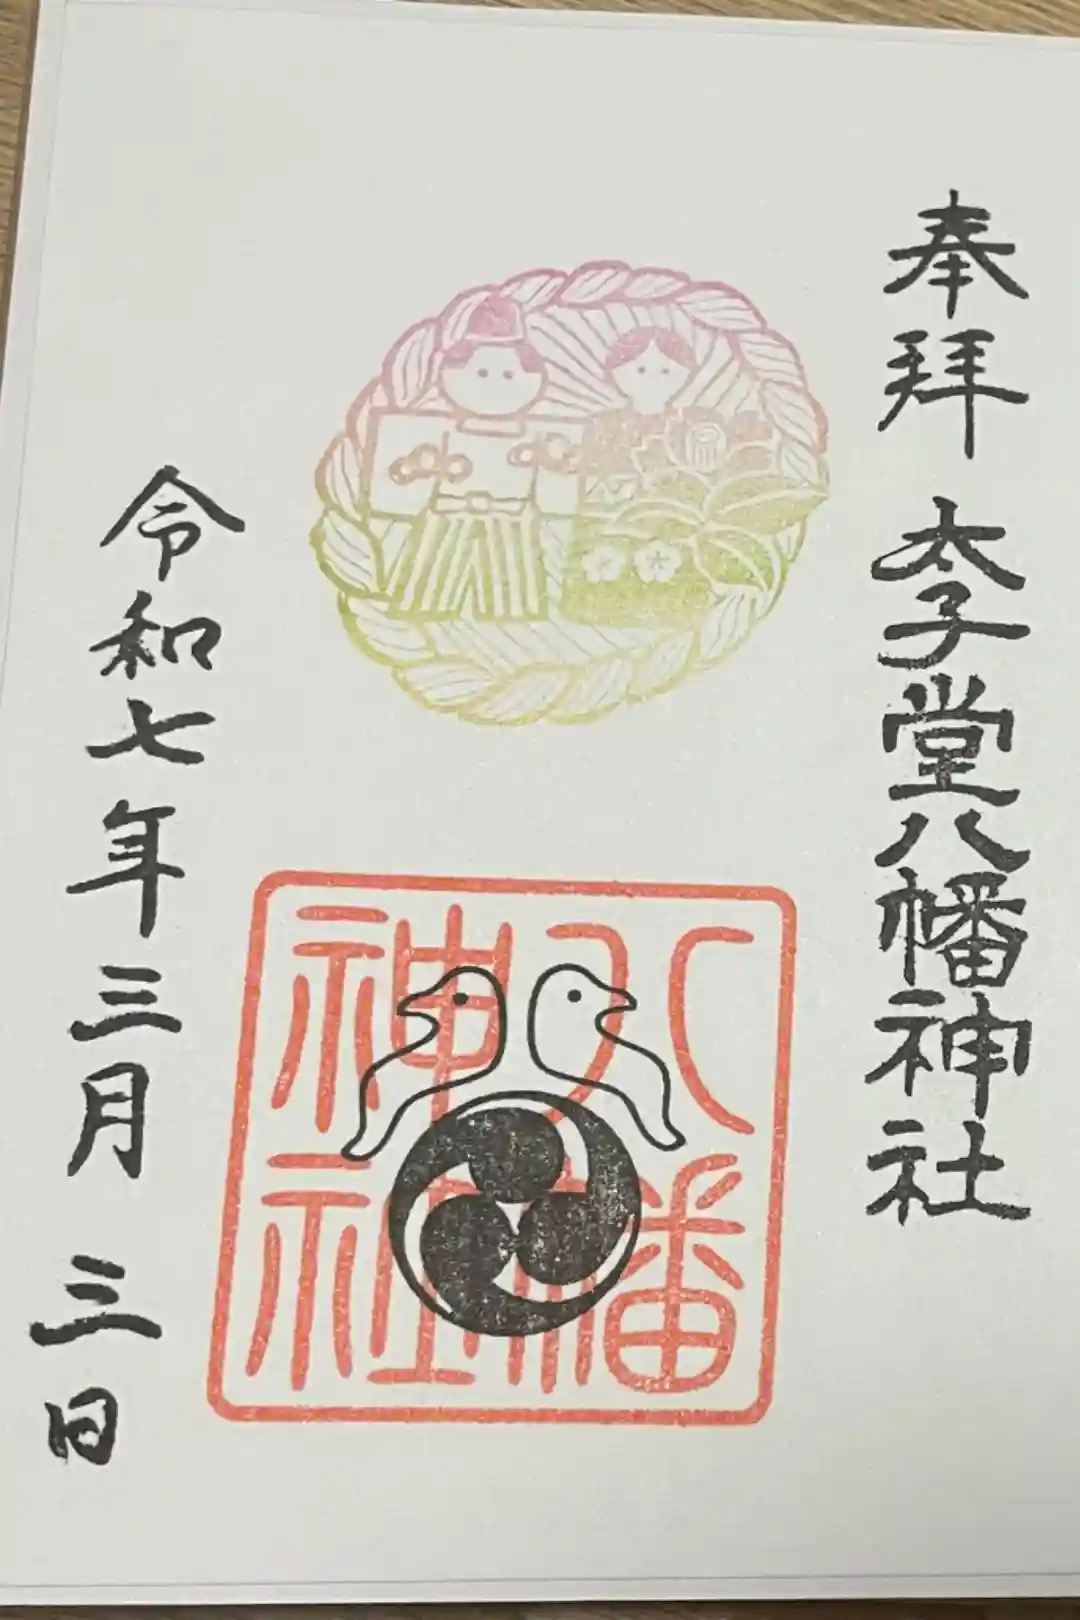 奉拝 太子堂八幡神社
八幡
神社
令和七年三月 三日